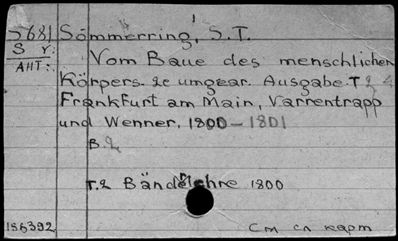 5681 Sömmerring, S.T.
S v: Vom Baue des menschlichen
АНТ: Körpers. 2e umgear. Ausgabe. T 2
Frankfurt am Main, Varrentrapp
und Wenner, 1800-1801
B. 2
T.2 Bändelehre 1800
186392
См сл карт